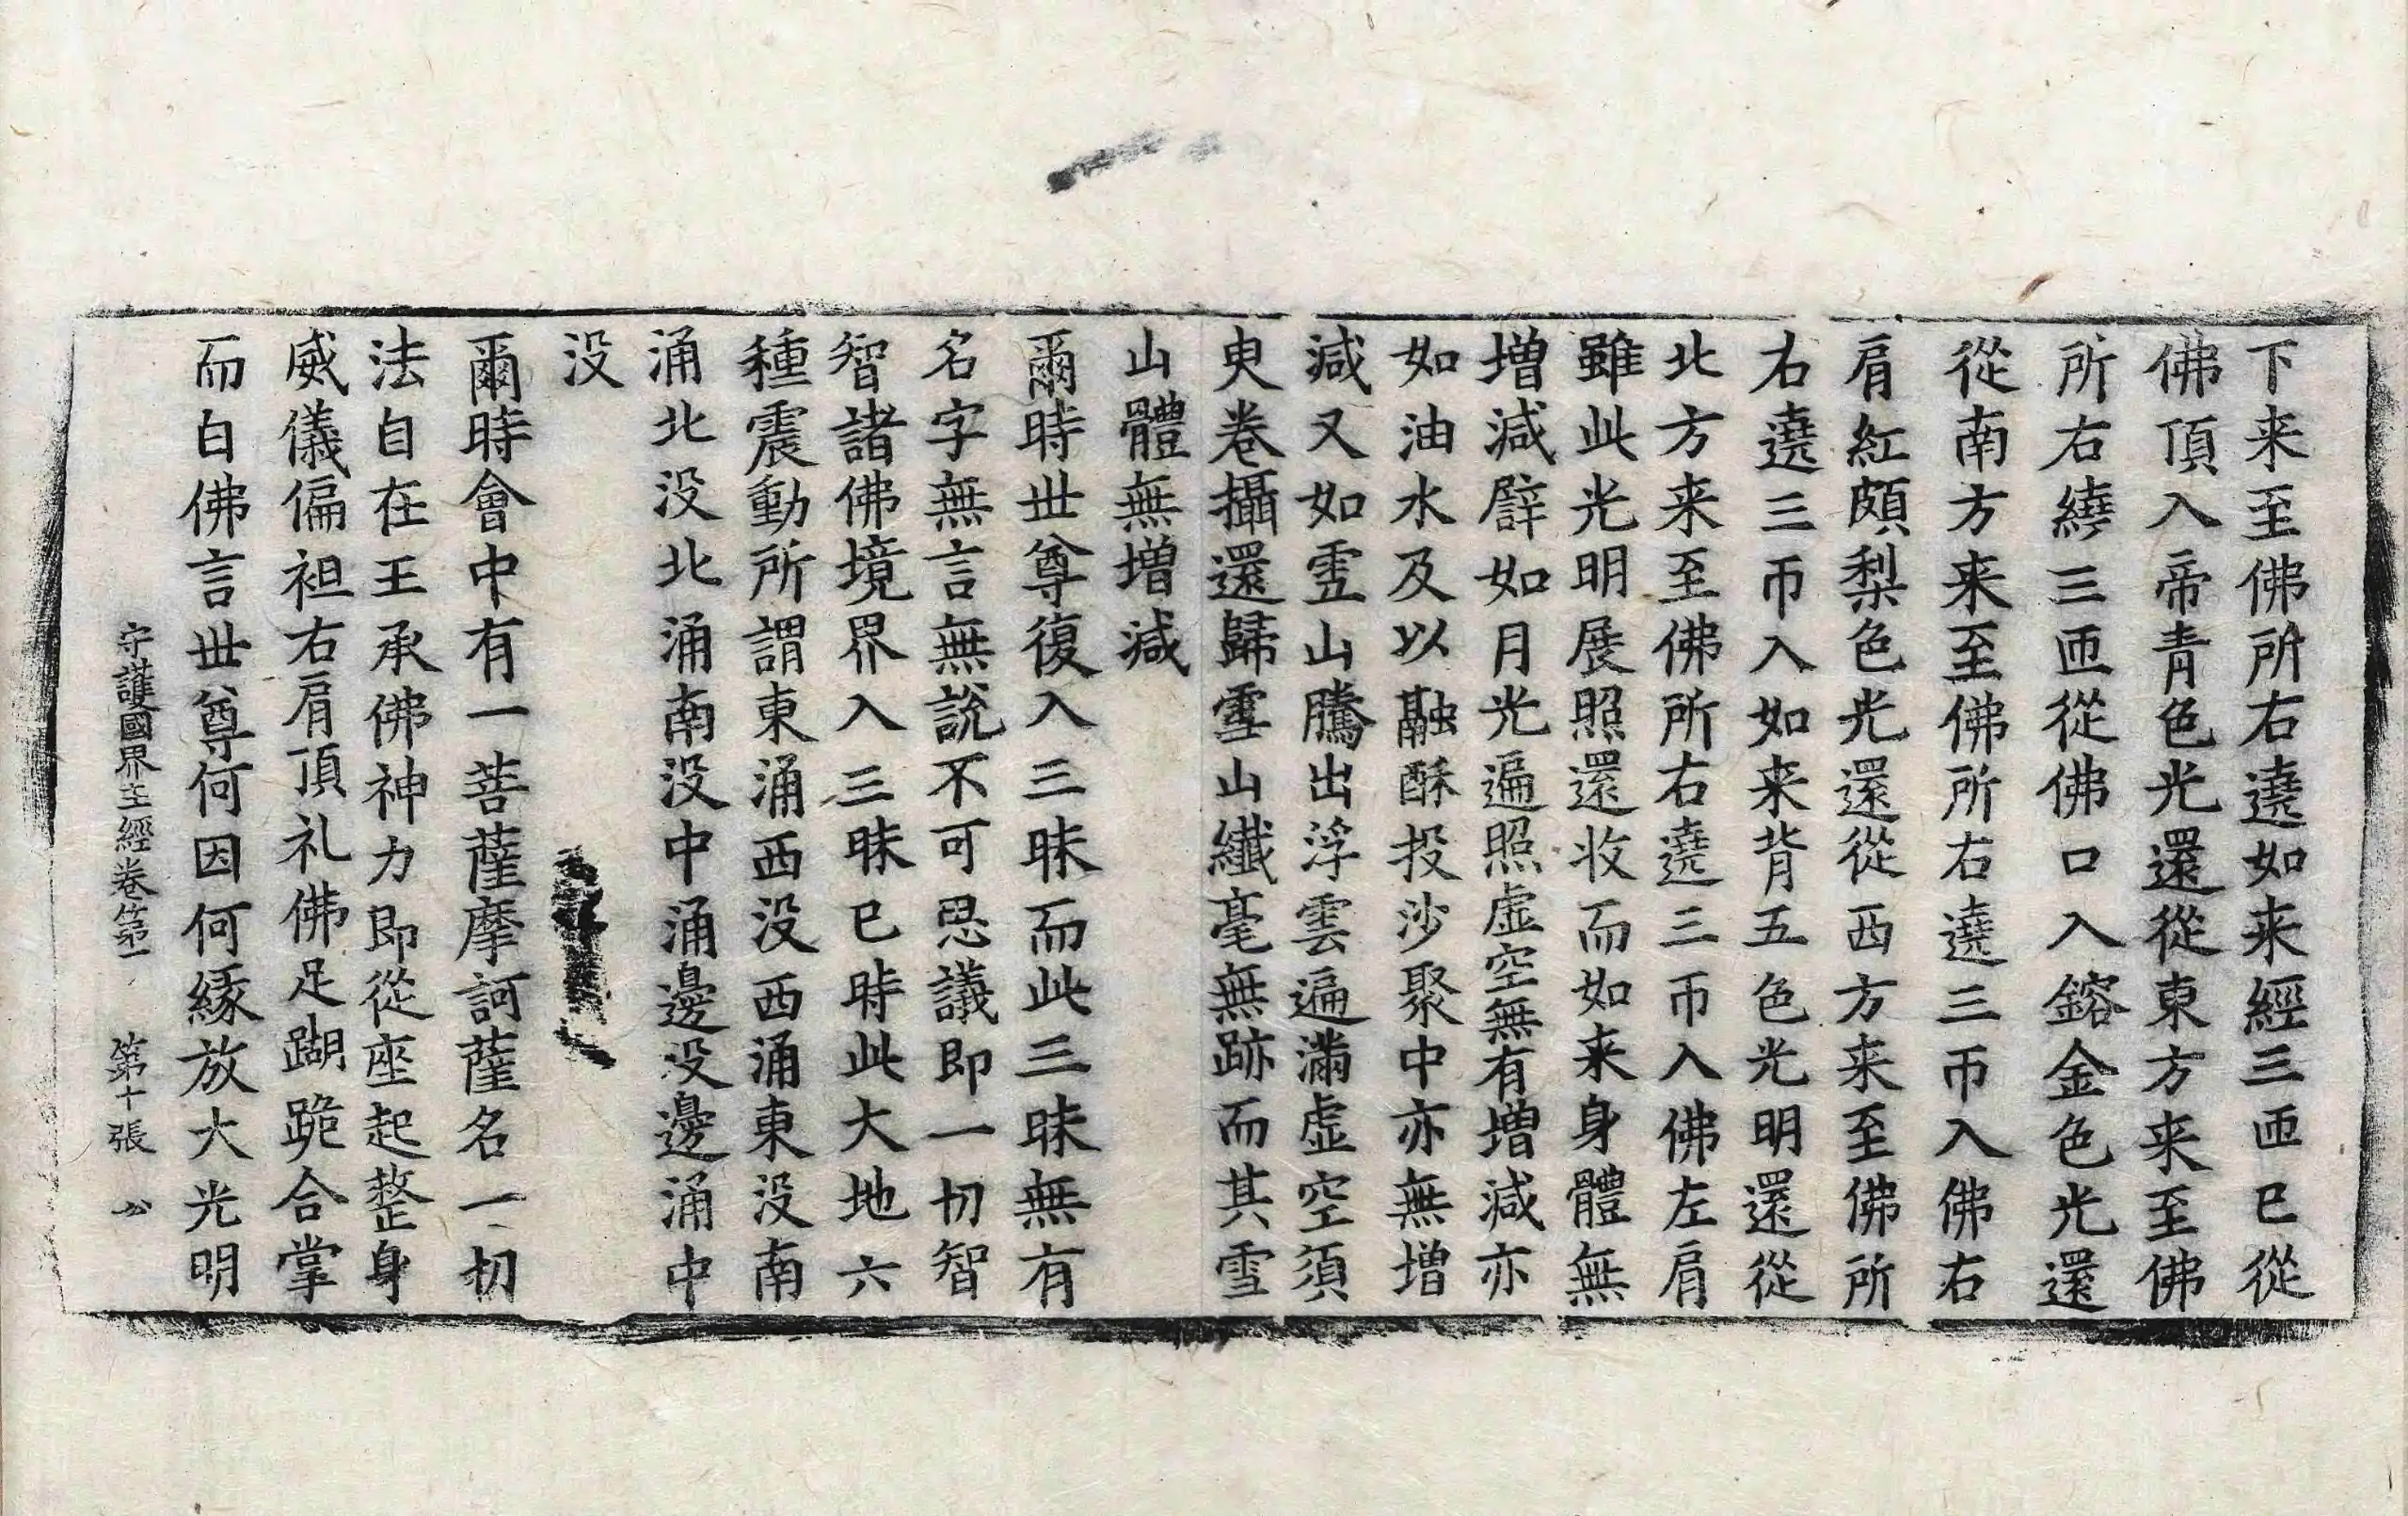 下来至佛所右遶如来經三匝已從
佛頂入帝青色光還從東方来至佛
所右繞三匝從佛口入鎔金色光還
從南方来至佛所右遶三帀入佛右
肩紅頗梨色光還從西方来至佛所
右遶三帀入如来背五色光明還從
北方来至佛所右遶三帀入佛左肩
雖此光明展照還收而如来身體無
增減辟如月光遍照虛空無有增減亦
如油水及以融酥投沙聚中亦無增
減又如雪山騰出浮雲遍滿虛空須
臾卷攝還歸雪山纖毫無跡而其雪
山體無增減
爾時世尊復入三昧而此三昧無有
名字無言無說不可思議即一切智
智諸佛境界入三昧已時此大地六
種震動所謂東涌西没西涌東没南
涌北没北涌南没中涌邊没邊涌中
没
爾時會中有一菩薩摩訶薩名一切
法自在王承佛神力即從座起整身
威儀偏袒右肩頂礼佛足𨄔跪合掌
而白佛言世尊何因何緣放大光明
守護國界主經卷第一　第十張